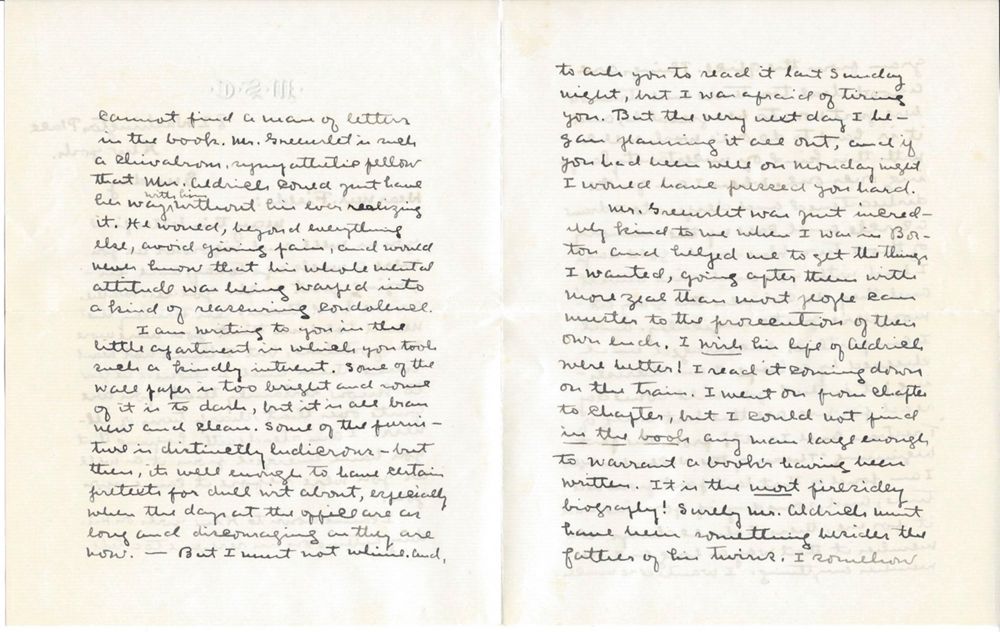 cannot find a man of letters
in the book. Mr. Greenslet is such
a chivalrous, sympathetic fellow
that Mrs. Aldrich could just have
her way with him without his ever realizing
it. He would, beyond everything
else, avoid giving pain, and would
never know that his whole mental
attitude was being warped into
a kind of reassuring condolence.
I am writing to you in the
little apartment in which you took
such a kindly interest. Some of the
wall paper is too bright and some
of it is to dark, but it is all bran
new and clean. Some of the furni-
ture is distinctly ludicrous - but
then, it well enough to have certain
pretexts for dull wit about, especially
when the days at the office are as
long and discouraging as they are
now. — But I must not whine and,
to ask you to read it last Sunday
night, but I was afraid of tiring
you. But the very next day I be-
gan planning it all out, and if
you had been well on Monday night
I would have pressed you hard.
Mr. Greenslet was just incred-
ibly kind to me when I was in Bos-
ton and helped me to get the things
I wanted, going after them with
more zeal than most people can
muster to the prosecution of their
own ends. I wish his life of Aldrich
were better! I read it coming down
on the train. I went on from chapter
to chapter, but I could not find
in the book any man large enough
to warrant a book's having been
written. It is the most firesidey
biography! Surely Mr. Aldrich must
have been something besides the
father of his twins. I somehow